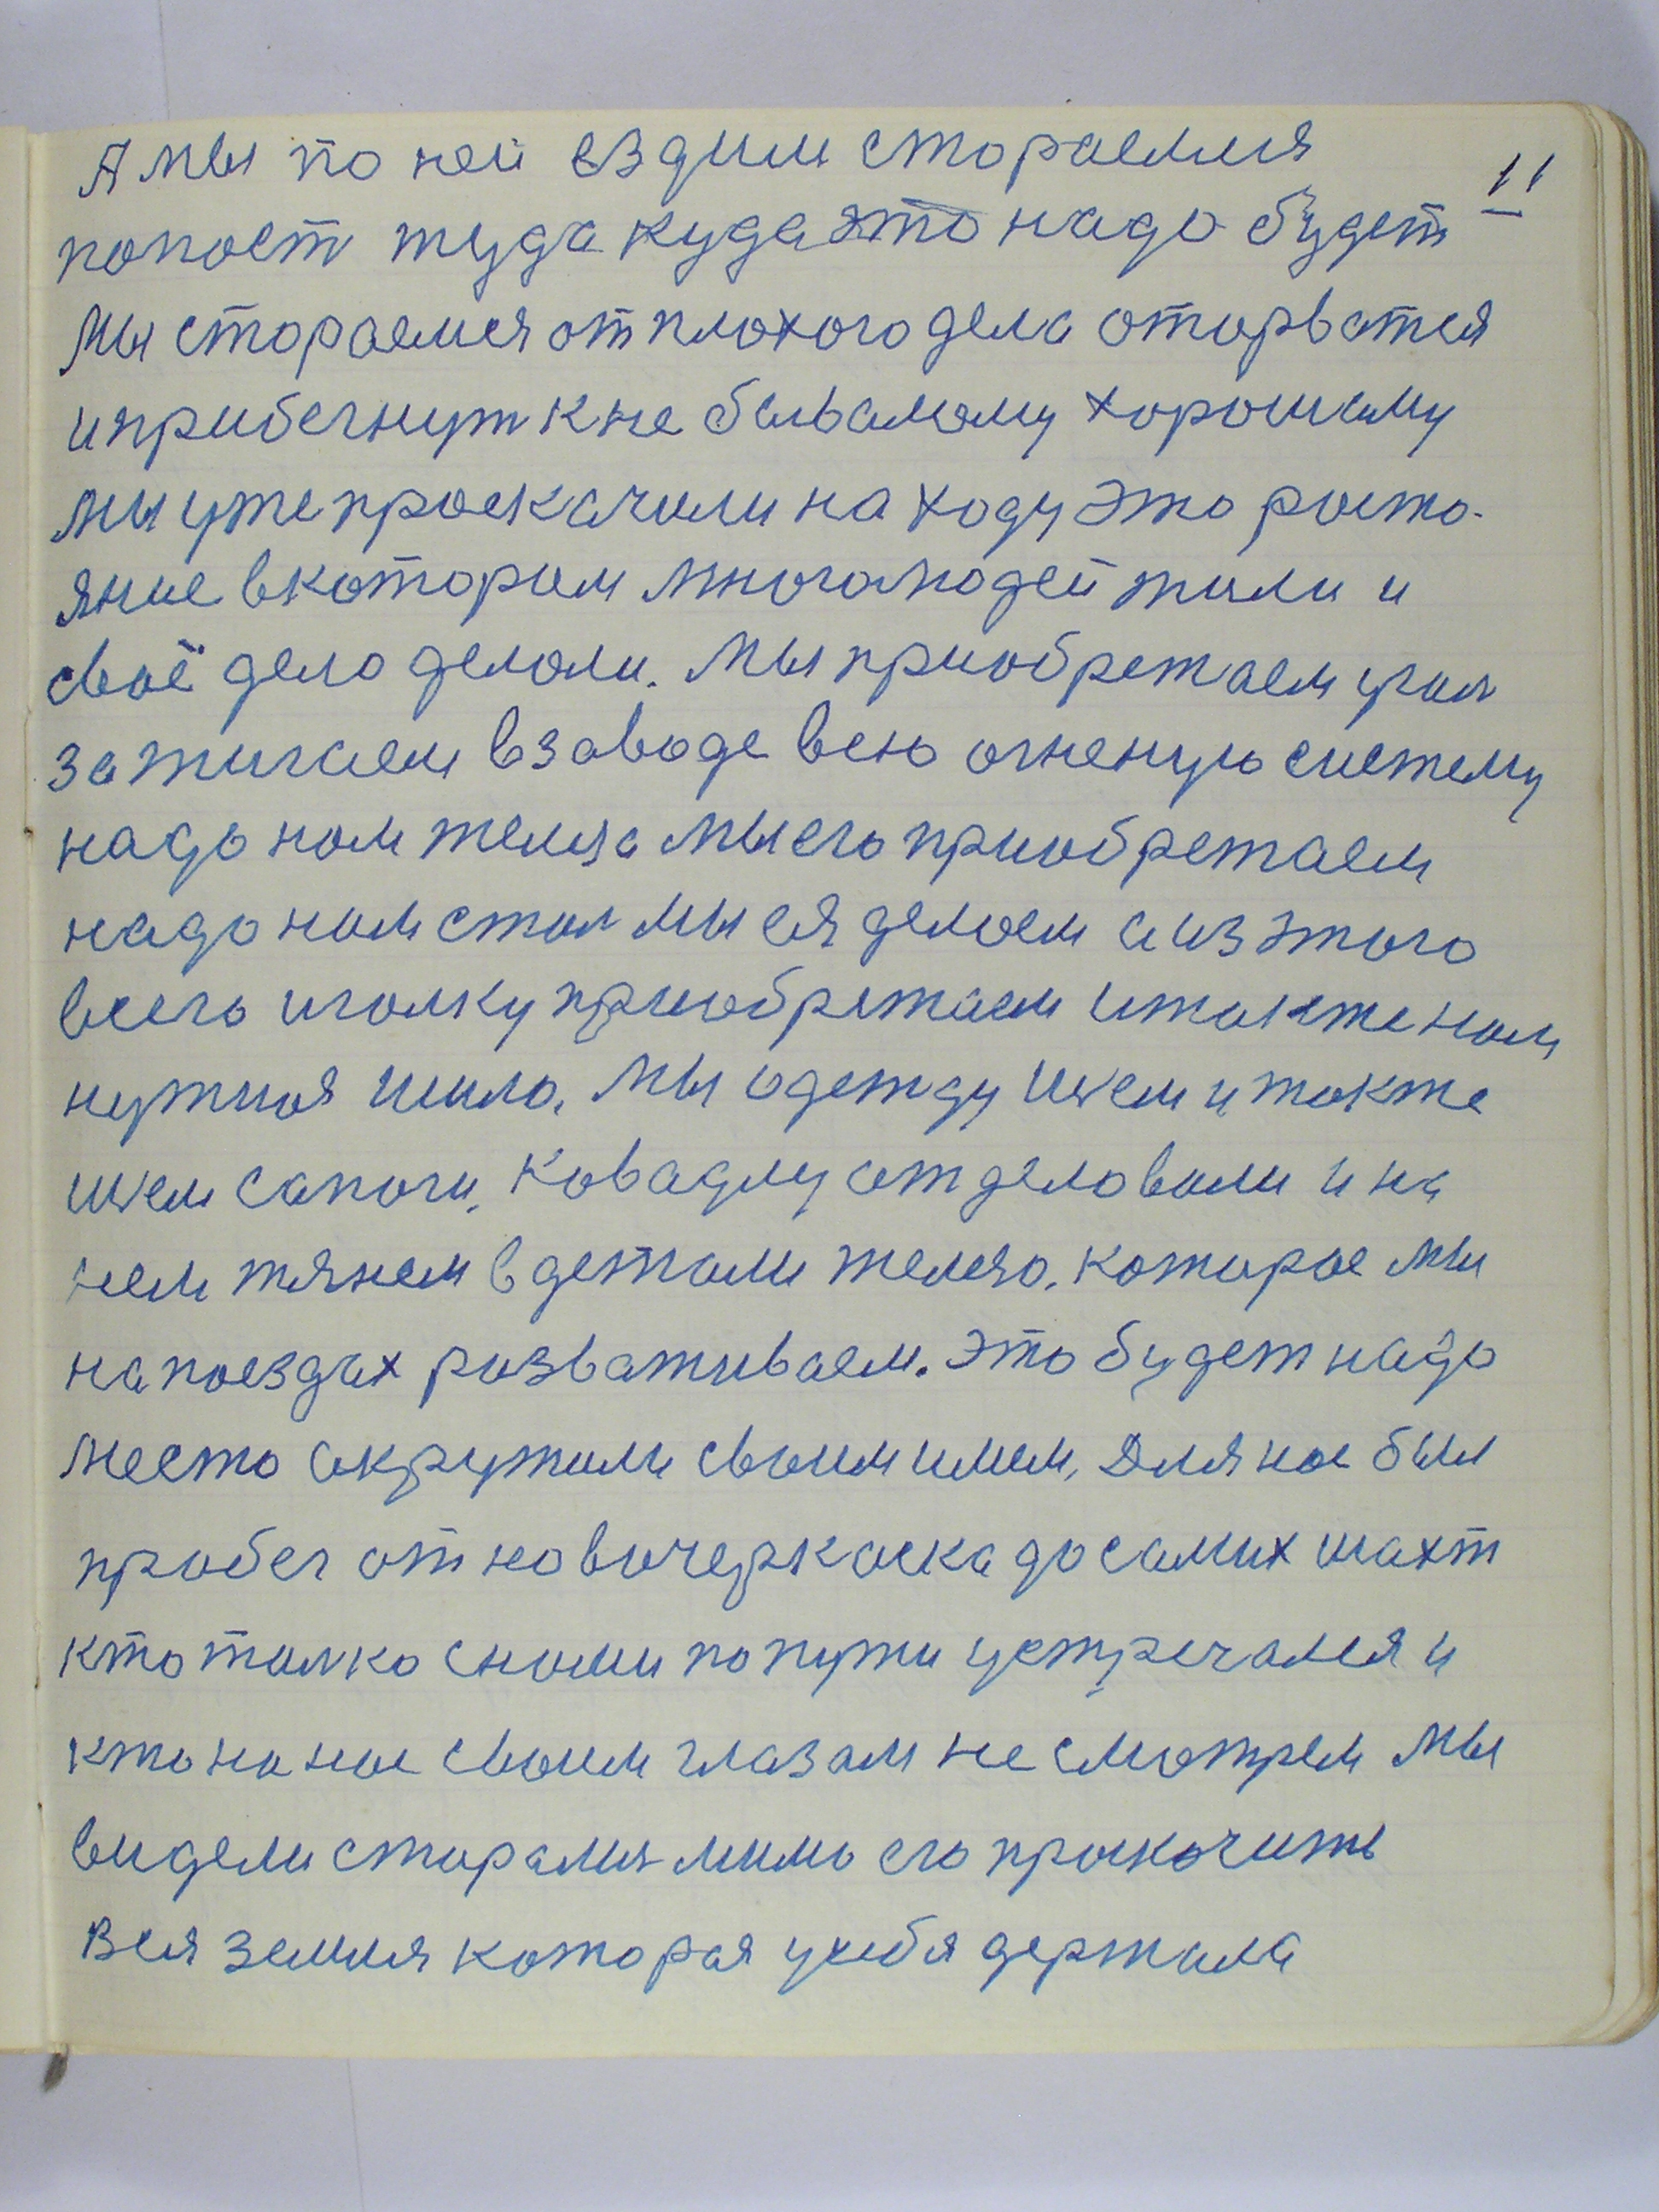 А мы по ней ездим стораемся
11
попост туда куда это надо будет
Мы стораемся от плохого дела оторватся
и прибегнут к не бывалому хорошему
мы уже проскачили на ходу это росто-
яние вкотором многа людей жили и
своё дело делоли. Мы приобретаем угол
зажигаем в заводе всю огненую систему
надо ном железа мы его приобретаем
надо ном стол мы ея делоем а из этого
всего иголку приобретаем и так же ном
нужная шило. Мы одежду шьем и так же
шьем сапоги. Ковадлу отделовали и на
нем тянем в детали железо. которое мы
на поездах розваживаем. Это будет надо
место окружили своим имем. Для нас был
пробег от новочеркаска до самих шахт
кто толко с нами по пути устречался и
кто на нас своем глазам не смотрел мы
видели сторался мимо его проскочить
Вся земля которая у себя держала